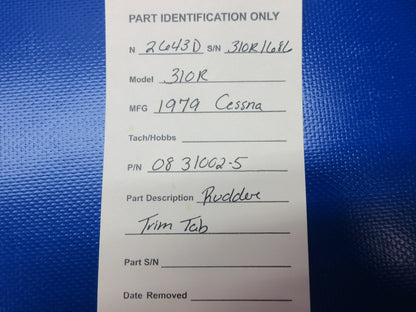 PART IDENTIFICATION ONLY
N 2643D S/N 310R1686
Model 310R
MFG 1979 Cessna
Tach/Hobbs
P/N 0831002-5
Part Description Rudder
Trim Tab
Part S/N
Date Removed